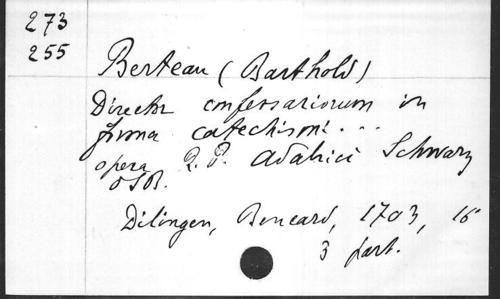 273
255
Berteau (Barthold)
Director confessariorum in
forma catechismi...
opera R. P. Adalrici Schwarz
OSB.
Dilingen, Bencard, 1703, 16°
3 part.